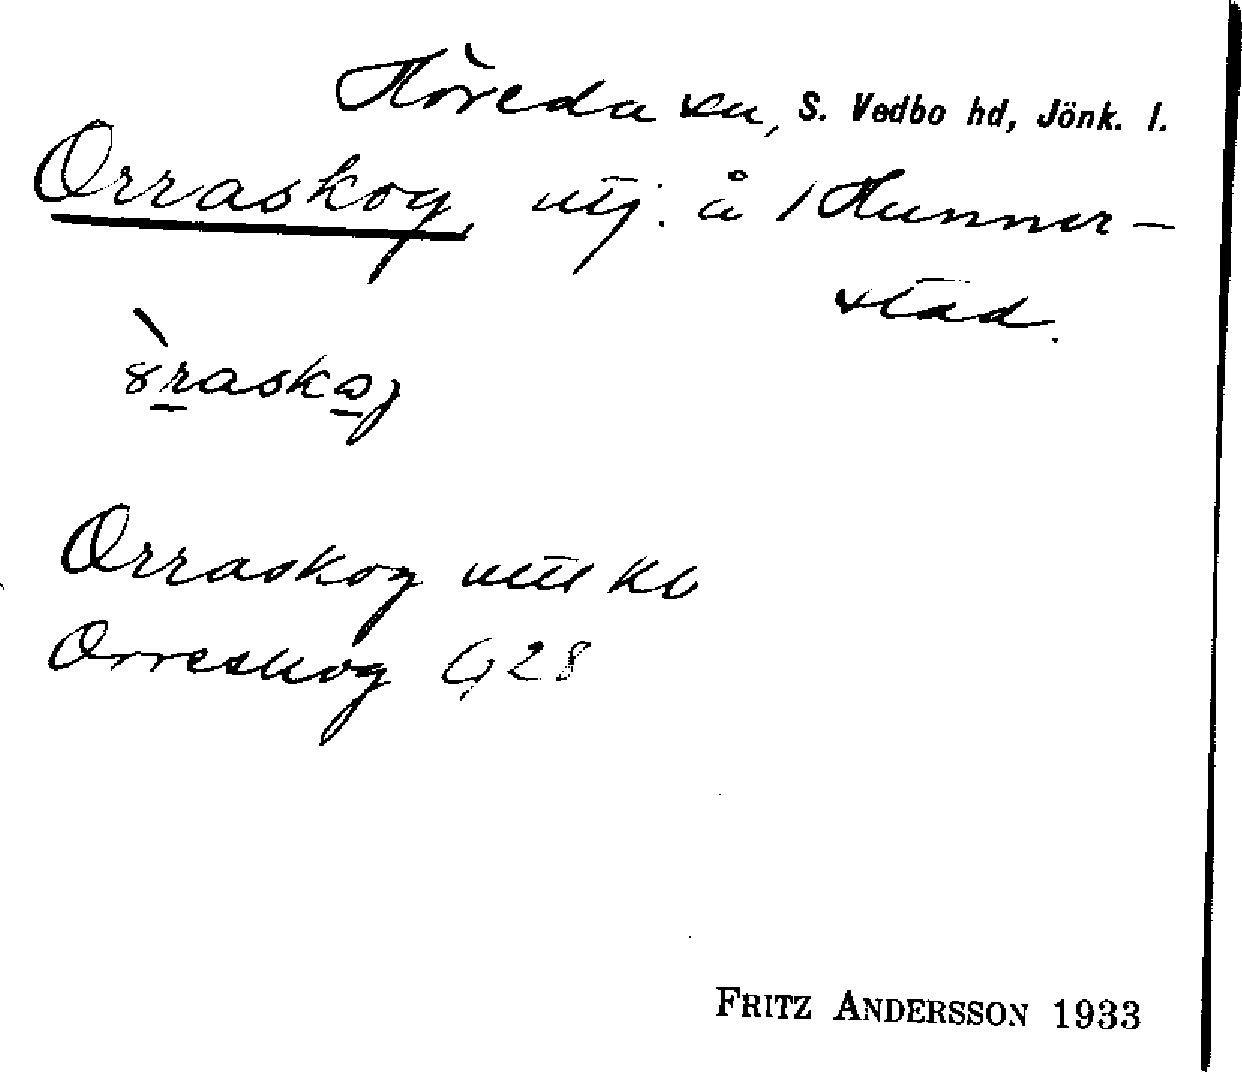 Höreda sn, S. Vedbo hd, Jönk. l.
Orraskog, utj. å / Hunner-
stad.
òraskog
Orraskog utj Kb
Orreskog G 28
FRITZ ANDERSSON 1933